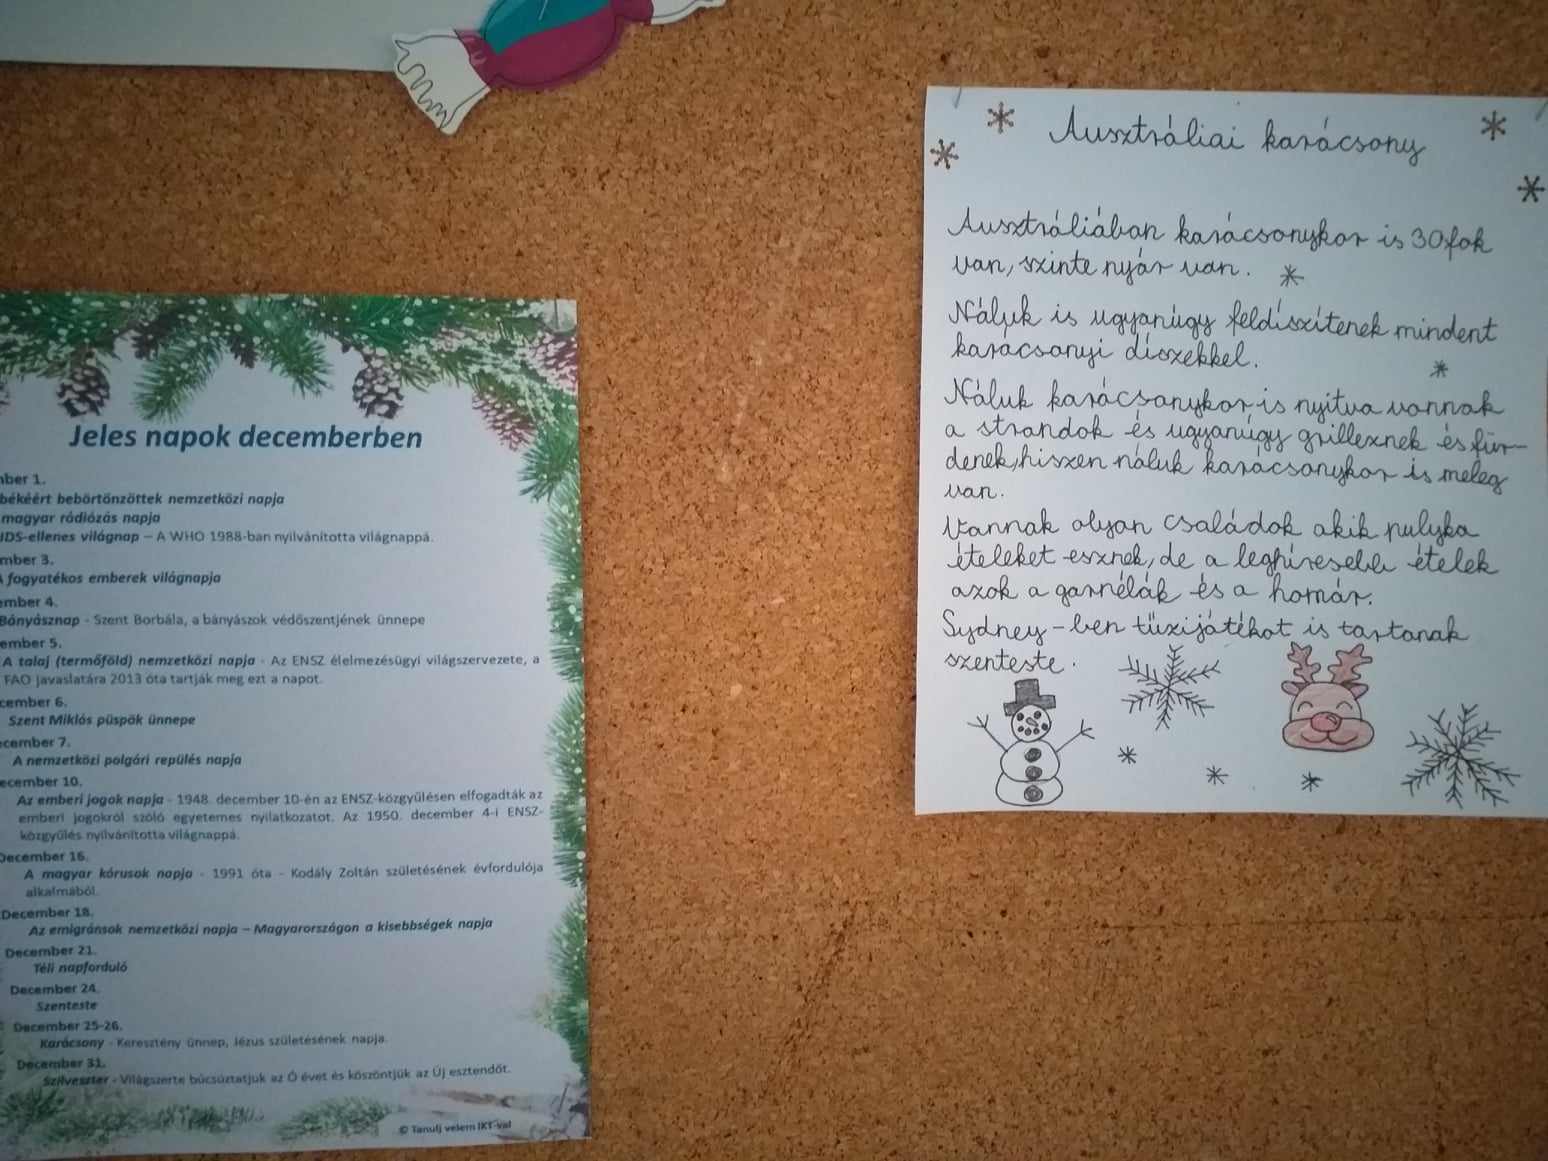 Jeles napok decemberben
mber 1.
békéért bebörtönzöttek nemzetközi napja
magyar rádiózás napja
IDS-ellenes világnap – A WHO 1988-ban nyilvánította világnappá.
mber 3.
A fogyatékos emberek világnapja
ember 4.
Bányásznap - Szent Borbála, a bányászok védőszentjének ünnepe
ember 5.
A talaj (termőföld) nemzetközi napja - Az ENSZ élelmezésügyi világszervezete, a
FAO javaslatára 2013 óta tartják meg ezt a napot.
cember 6.
Szent Miklós püspök ünnepe
ecember 7.
A nemzetközi polgári repülés napja
ecember 10.
Az emberi jogok napja - 1948. december 10-én az ENSZ-közgyűlésen elfogadták az
emberi jogokról szóló egyetemes nyilatkozatot. Az 1950. december 4-i ENSZ-
közgyűlés nyilvánította világnappá.
December 16.
A magyar kórusok napja - 1991 óta - Kodály Zoltán születésének évfordulója
alkalmából.
December 18.
Az emigránsok nemzetközi napja – Magyarországon a kisebbségek napja
December 21.
Téli napforduló
December 24.
Szenteste
December 25-26.
Karácsony - Keresztény ünnep, Jézus születésének napja.
December 31.
Szilveszter - Világszerte búcsúztatjuk az Ó évet és köszöntjük az Új esztendőt.
© Tanulj velem IKT-val
Ausztráliai karácsony
Ausztráliában karácsonykor is 30 fok
van, szinte nyár van.
Náluk is ugyanúgy feldíszítenek mindent
karácsonyi díszekkel.
Náluk karácsonykor is nyitva vannak
a strandok és ugyanúgy grilleznek és für-
denek, hiszen náluk karácsonykor is meleg
van.
Vannak olyan családok akik pulyka
ételeket esznek, de a leghíresebb ételek
azok a garnélák és a homár.
Sydney-ben tűzijátékot is tartanak
szenteste.